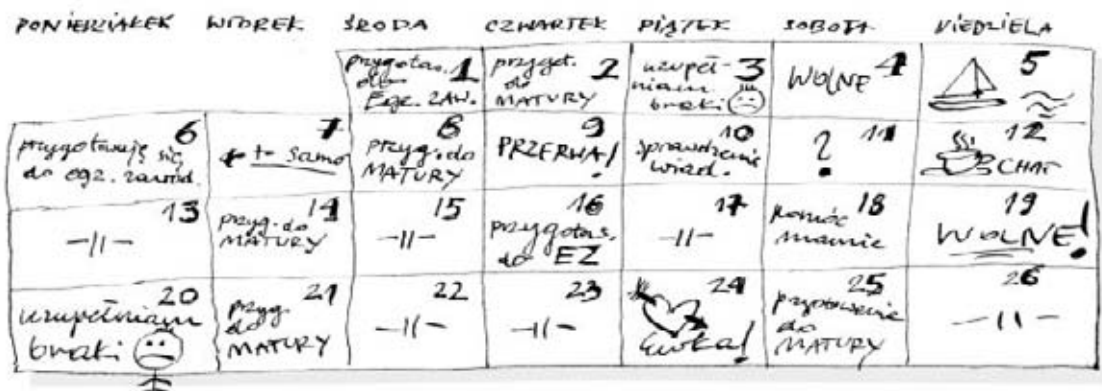 PONIEDZIAŁEK WTOREK ŚRODA CZWARTEK PIĄTEK SOBOTA NIEDZIELA
przygotow. 1
do
Egz. ZAW.
przygot. 2
do
MATURY
uzupeł- 3
niam
braki
WOLNE 4
5
6
przygotowuję się
do egz. zawod.
7
to samo
8
przyg. do
MATURY
9
PRZERWA!
10
sprawdzenie
wiad.
11
?
12
CHAT
13
-11-
14
przyg. do
MATURY
15
-11-
16
przygotow.
do EZ
17
-11-
18
pomóc
mamie
19
WOLNE!
20
uzupełniam
braki
21
przyg.
do
MATURY
22
-11-
23
-11-
24
Ewka!
25
przygotowanie
do
MATURY
26
-11-